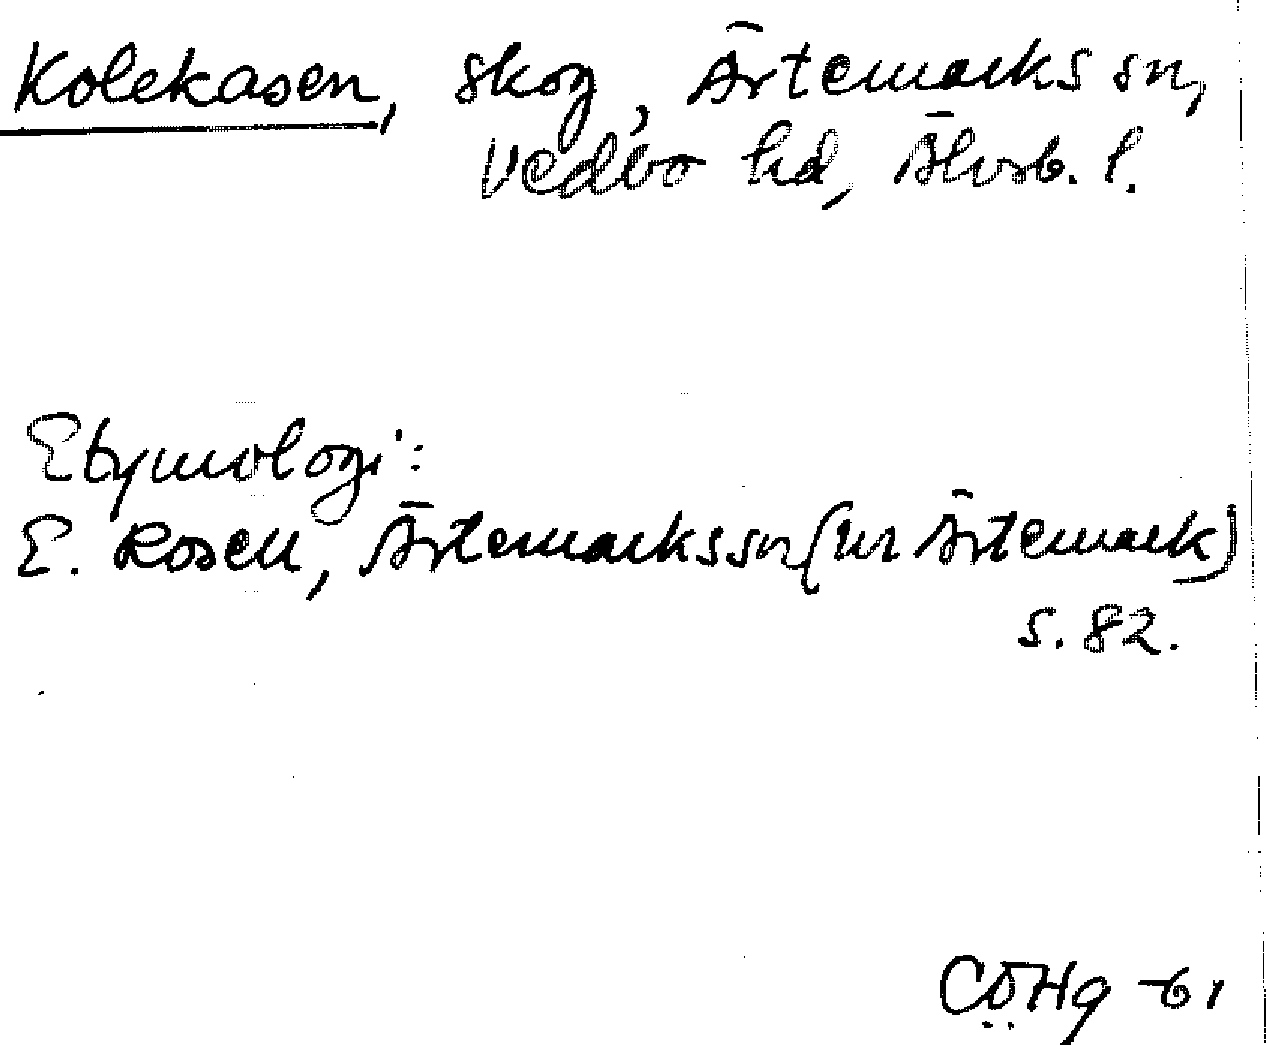 Kolekasen, skog, Ärtemarks sn,
Vedbo hd, Älvsb. l.
Etymologi:
E. Rosell, Ärtemarks sn (ur Ärtemark)
s. 82.
CÖHg -61